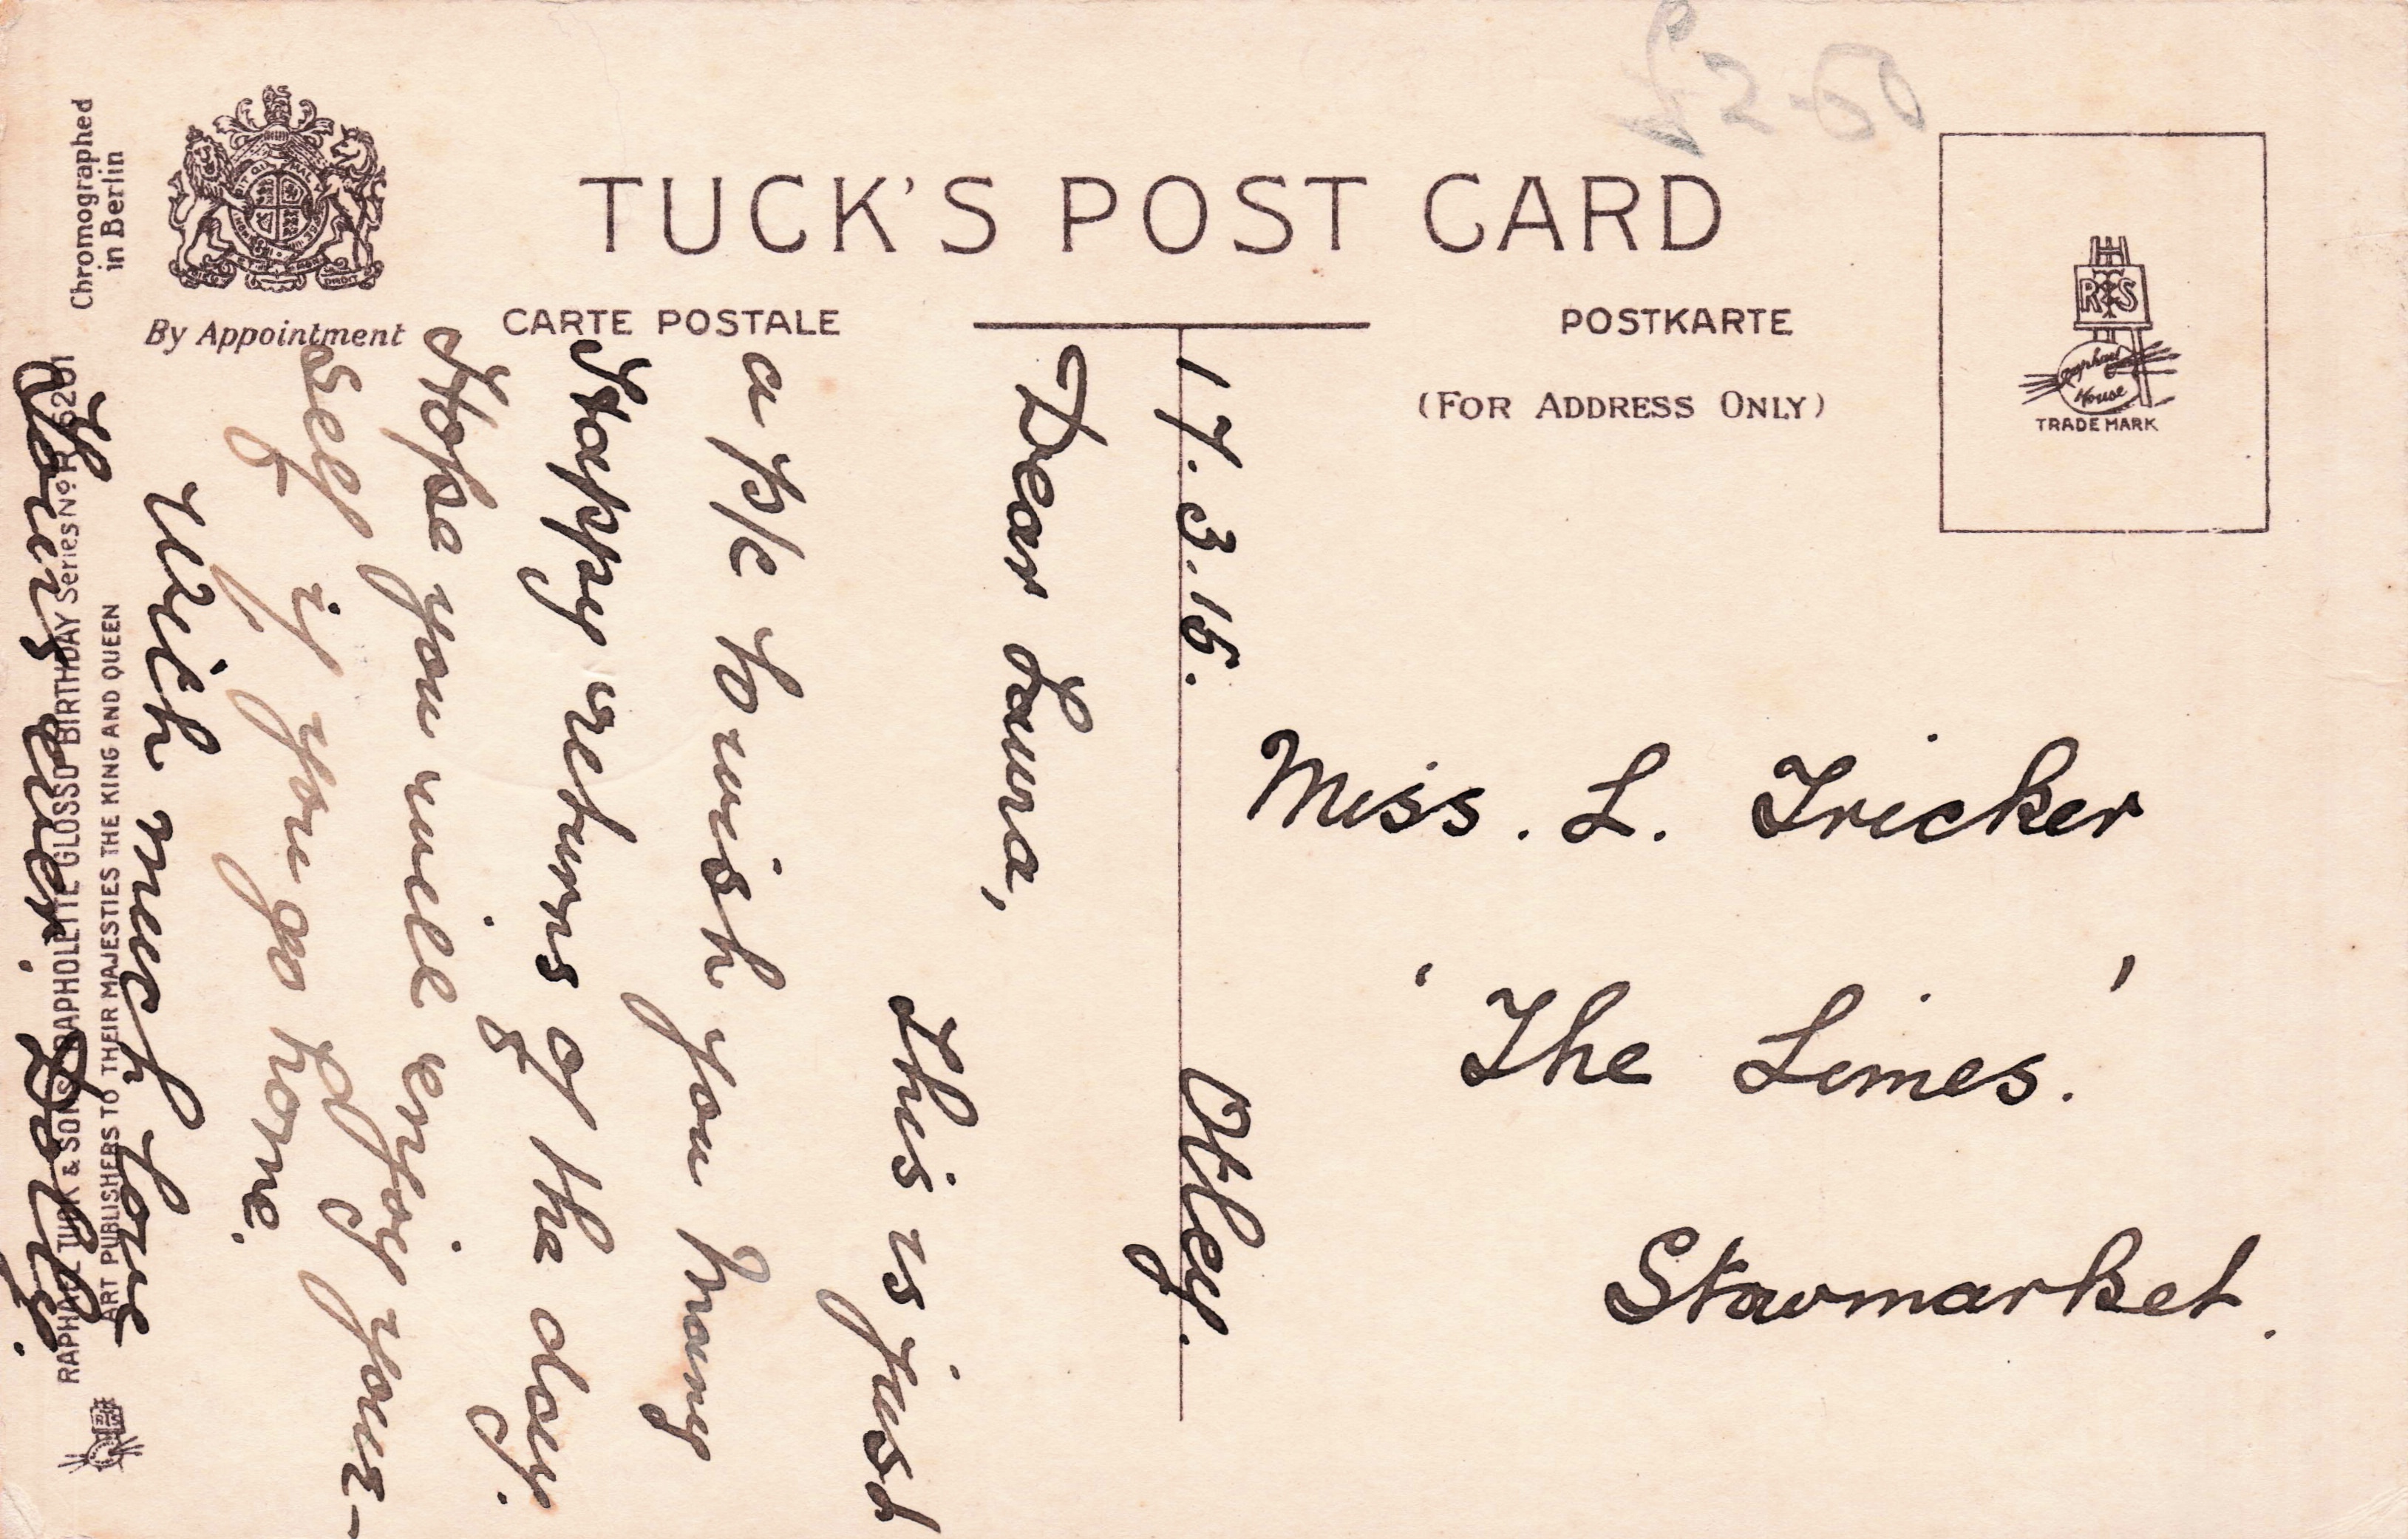 £2-50
Chromographed
in Berlin
By Appointment
TUCK'S POST CARD
CARTE POSTALE
POSTKARTE
(FOR ADDRESS ONLY)
R T S
Raphael
House
TRADE MARK
17.3.15.
Otley.
Dear Laura,
This is just
a p/c to wish you many
Happy returns of the day.
Hope you will enjoy your-
self if you go home.
With much love
Your ever. Dolly.
Miss. L. Tricker
'The Limes.'
Stowmarket.
RAPHAEL TUCK & SONS "RAPHOLETTE GLOSSO" BIRTHDAY Series No R 6201
ART PUBLISHERS TO THEIR MAJESTIES THE KING AND QUEEN